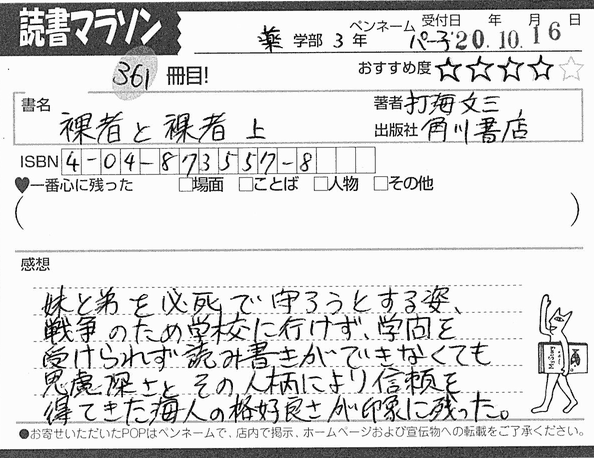 読書マラソン
薬 学部 3 年 ペンネーム パー子 受付日 20. 年 10. 月 16 日
361 冊目! おすすめ度 ☆☆☆☆☆
書名 裸者と裸者 上 著者 打海文三
出版社 角川書店
ISBN 4-04-873557-8
♥一番心に残った □場面 □ことば □人物 □その他
( )
感想
妹と弟を必死で守ろうとする姿、
戦争のため学校に行けず、学問を
受けられず読み書きができなくても
思慮深さとその人柄により信頼を
得てきた海人の格好良さが印象に残った。
●お寄せいただいたPOPはペンネームで、店内で掲示、ホームページおよび宣伝物への転載をご了承ください。